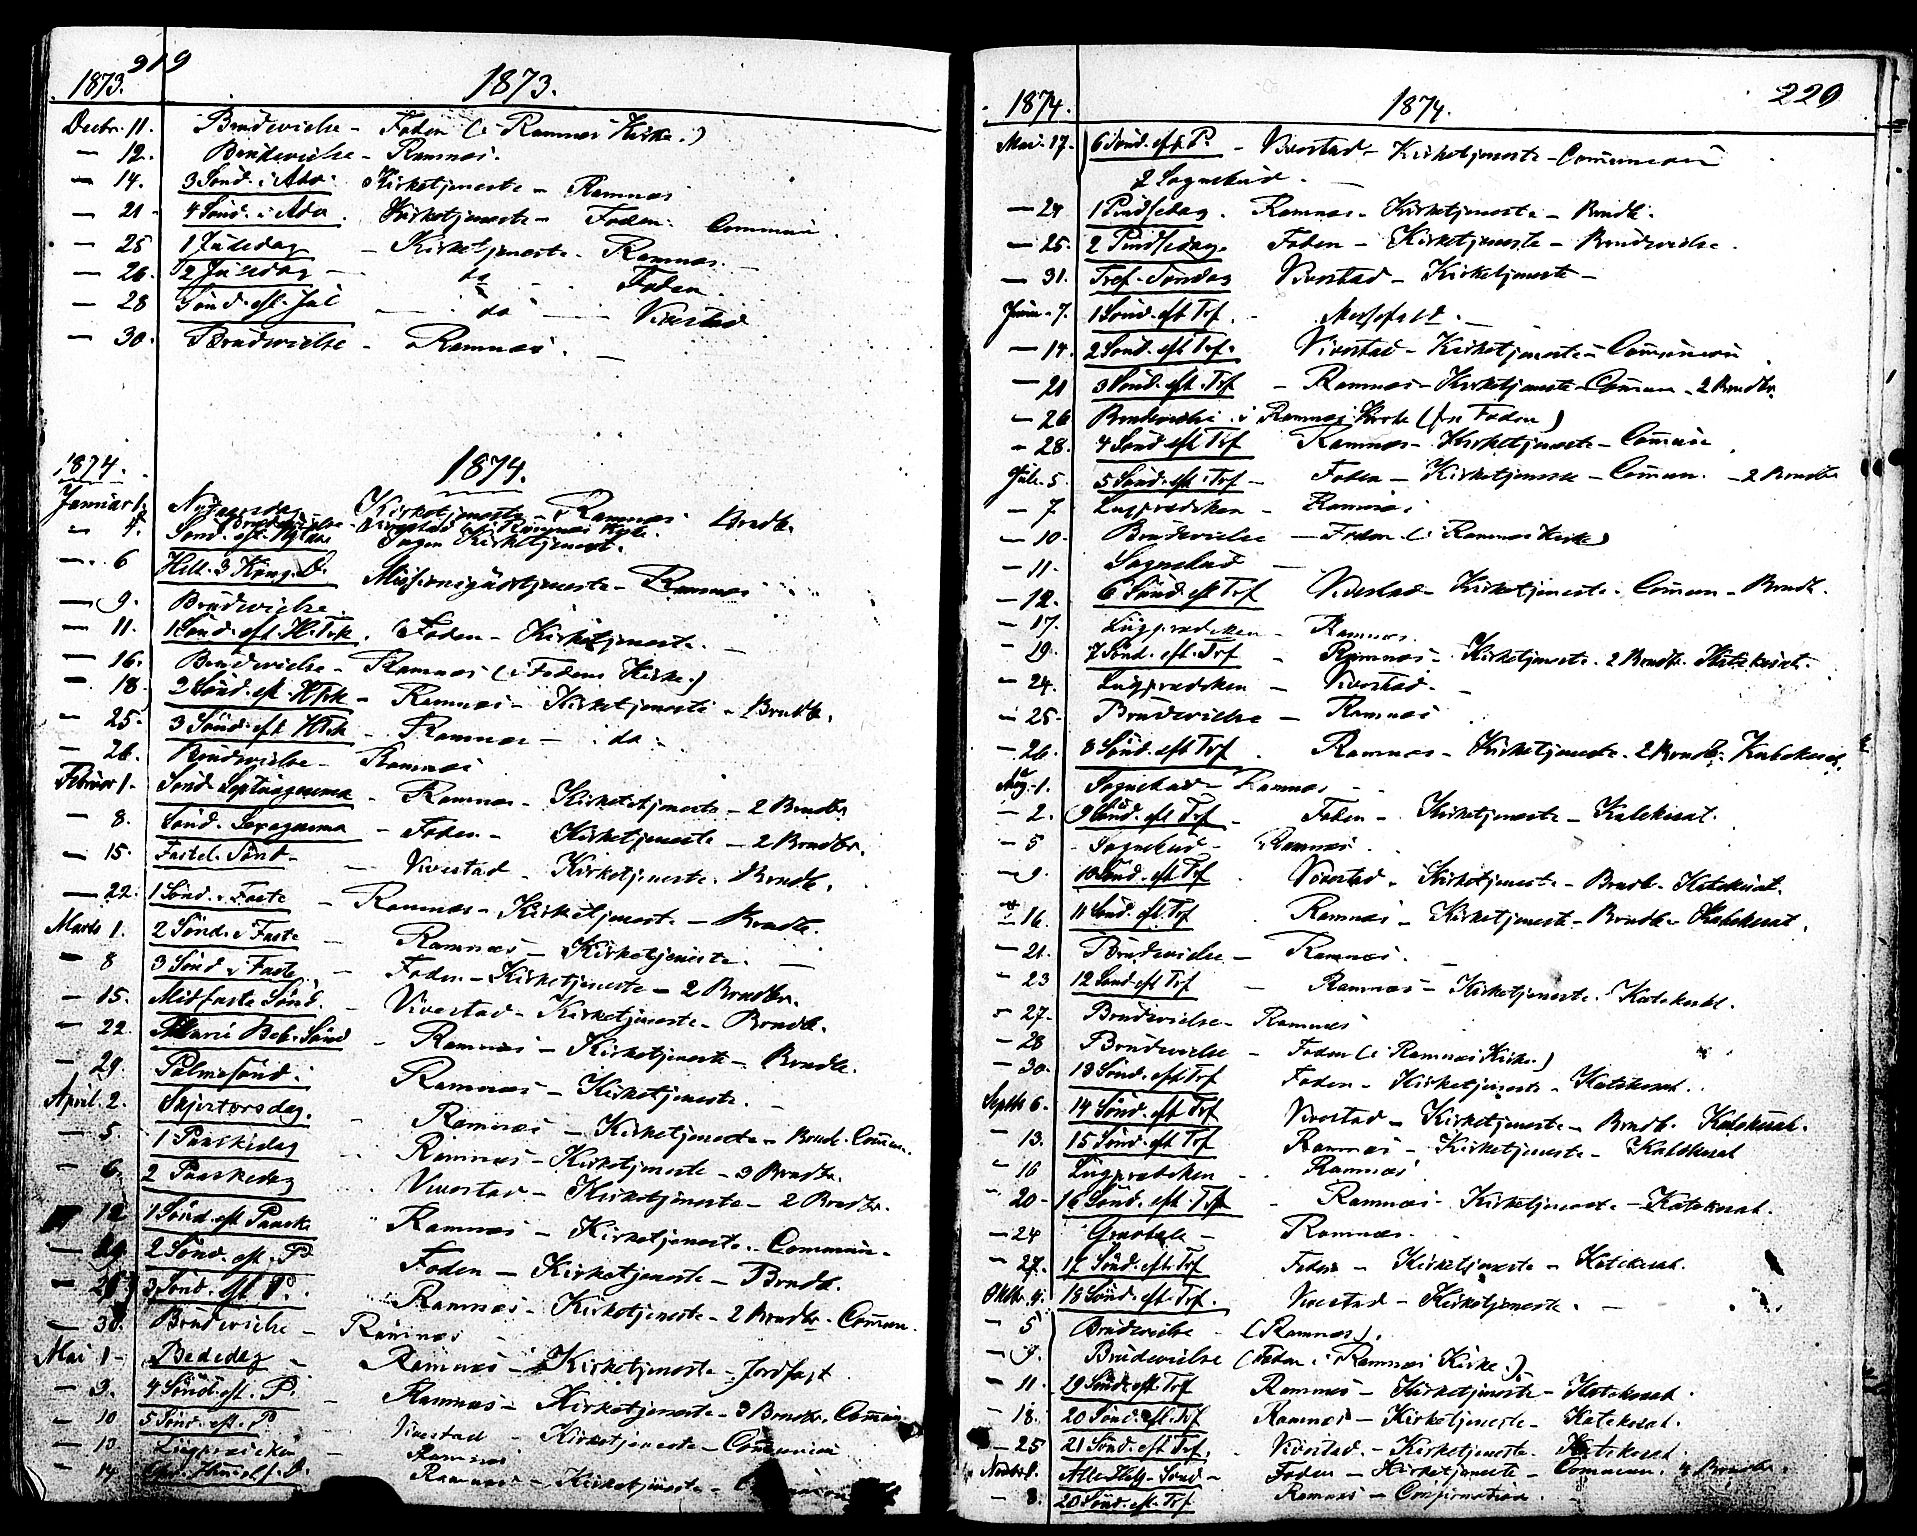 219
1873. 1873.
Decbr. 11. Brudevielse - Foden (i Ramnæs Kirke.)
— 12. Brudevielse - Ramnæs.
— 14. 3 Sønd. i Adv. Kirketjeneste - Ramnæs
— 21 4 Sønd. i Adv. Kirketjeneste - Foden. Commun.
— 25 1 Juledag - Kirketjeneste - Ramnæs.
— 26. 2 Juledag - do - Foden.
— 28 Sønd. eft. Jul - do - Vivestad
— 30. Brudevielse - Ramnæs.
1874. 1874.
Januar 1. Nytaarsdag Kirketjeneste - Ramnæs Brudv.
Brudevielse - Vivestad (i Ramnæs Kirke.
— 4. Sønd. eft. Nytaar Ingen Kirketjenest.
— 6 Hell. 3 Kong. D. Missionsgudstjeneste - Ramnæs
— 9. Brudevielse.
— 11. 1 Sønd. eft. H. 3 K. Foden - Kirketjeneste.
— 16. Brudevielse - Ramnæs (i Fodens Kirke.)
— 18. 2 Sønd. eft. H3K - Ramnæs - Kirketjeneste - Brudv.
— 25. 3 Sønd. eft H3K - Ramnæs - do -
— 26. Brudevielse - Ramnæs
Februar 1. Sønd. Septuagesima - Ramnæs - Kirketjeneste - 2 Brudv.
— 8. Sønd. Sexagesima - Foden - Kirketjeneste - 2 Brudv.
— 15. Fastel. Sønd - Vivestad - Kirketjeneste. Brudv.
— 22. 1 Sønd. i Faste - Ramnæs - Kirketjeneste - Brudv.
Marts 1. 2 Sønd. i Faste - Ramnæs - Kirketjeneste.
— 8 3 Sønd. i Faste - Foden - Kirketjeneste - 2 Brudv.
— 15. Midfaste Sønd. - Vivestad - Kirketjeneste - Brudv.
— 22. Mariæ Beb. Sønd - Ramnæs - Kirketjeneste - Brudv.
— 29. Palmesønd. Ramnæs - Kirketjeneste.
April. 2. Skjertorsdag. - Ramnæs - Kirketjeneste - Brudv. Commun.
— 5. 1 Paaskedag Ramnæs - Kirketjeneste - 3 Brudv.
— 6. 2 Paaskedag Vivestad - Kirketjeneste - 2 Brudv.
— 12 1 Sønd. eft Paaske Ramnæs - Kirketjeneste - Commun.
— 19. 2 Sønd. eft. P Foden - Kirketjeneste - Brudv.
— 26 3 Sønd. eft. P. Ramnæs - Kirketjeneste - 2 Brudv. Commun.
— 30. Brudevielse - Ramnæs
Mai 1 - Bededag - Ramnæs - Kirketjeneste - Jordfæst
— 3. 4 Sønd. eft. P. - Ramnæs - Kirketjeneste - 3 Brudv. Commun
— 10 5 Sønd. eft. P. Vivestad - Kirketjeneste - Communion
— 13 Lugprædiken - Ramnæs
— 14 Chr. Himmelf. D. Ramnæs - Kirketjeneste -
220
1874. 1874.
Mai 17. 6 Sønd. eft. P. - Vivestad - Kirketjeneste - Communion
2 Sognebud.
— 24 1 Pindsedag. Ramnæs - Kirketjeneste - Brudv.
— 25. 2 Pindsedag. Foden - Kirketjeneste - Brudevielse.
— 31. Tref. Søndag Vivestad - Kirketjeneste -
Juni 7. 1 Sønd. eft Trf. - Messefald.
— 14. 2 Sønd. eft. Trf. Vivestad - Kirketjeneste - Communion
— 21 3 Sønd. eft. Trf - Ramnæs - Kirketjeneste - Commun - 2 Brudv.
— 26 Brudevielse i Ramnæs Kirke (fra Foden)
— 28. 4 Sønd eft Trf Ramnæs - Kirketjeneste - Commun
Juli 5. 5 Sønd. eft. Trf - Foden - Kirketjeneste - Commun. - 2 Brudv
— 7. Lugprædiken - Ramnæs
— 10. Brudevielse - Foden (i Ramnæs Kirke)
— 11. Sognebud -
— 12. 6 Sønd. eft Trf Vivestad - Kirketjeneste - Commun - Brudv.
— 17. Lugprædiken - Ramnæs.
— 19. 7 Sønd. eft. Trf - Ramnæs - Kirketjeneste. 2 Brudv. Katekisat.
— 24. Lugprædiken - Vivestad.
— 25. Brudevielse - Ramnæs
— 26. 8 Sønd. eft Trf. Ramnæs - Kirketjeneste. 2 Brudv. Katekisat.
Aug. 1. Sognebud - Ramnæs - -
— 2. 9 Sønd. eft Trf - Foden - Kirketjeneste - Katekisat.
— 5 Sognebud - Ramnæs.
— 9. 10 Sønd. eft Trf. Vivestad - Kirketjeneste - Brudv. Katekisat.
— 16. 11 Sønd. eft. Trf Ramnæs - Kirketjeneste - Brudv - Katekisat.
— 21. Brudevielse - Ramnæs.
— 23 12 Sønd eft Trf - Ramnæs - Kirketjeneste. Katekisat.
— 27. Brudevielse - Ramnæs
— 28 Brudevielse - Foden (i Ramnæs Kirke.)
— 30. 13 Sønd. eft Trf Foden - Kirketjeneste - Katekisat.
Septbr 6. 14 Sønd. eft Trf Vivestad - Kirketjeneste - Brudv. Katekisat.
— 13. 15 Sønd. eft Trf Ramnæs - Kirketjeneste - Katekisat
— 16 Lugprædiken - Ramnæs
— 20 - 16 Sønd. eft. Trf - Ramnæs - Kirketjeneste - Katekisat.
— 24 - Ramnæs.
— 27. 17 Sønd. eft. Trf Foden - Kirketjeneste - Katekisat.
Oktbr. 4. 18 Sønd. eft. Trf. Vivestad - Kirketjeneste.
— 5 Brudevielse - (Ramnæs).
— 9. Brudevielse (Foden i Ramnæs Kirke.)
— 11. 19 Sønd. eft. Trf Ramnæs - Kirketjeneste - Katekisat.
— 18. 20 Sønd. eft. Trf Ramnæs - Kirketjeneste - Katekisat.
— 25 21 Sønd. eft Trf. - Vivestad. - Kirketjeneste. Katekisat.
Novbr 1. Alle Helg. Sønd - Foden - Kirketjeneste - Commun. 4 Brudv.
— 8. 20 Sønd. eft. Trf Ramnæs - Confirmation.